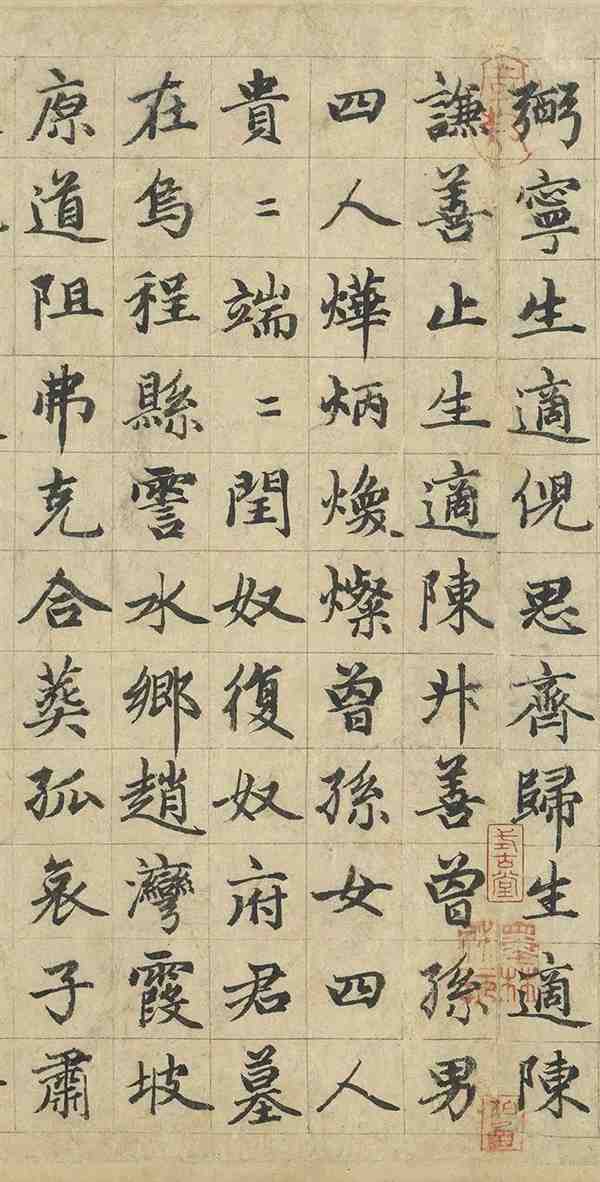 弼寧生適倪思齊歸生適陳
謙善止生適陳外善曾孫男
四人燁炳煥燦曾孫女四人
貴〻端〻閏奴復奴府君墓
在烏程縣霅水鄉趙灣霞坡
原道阻弗克合葬孤哀子肅
式古堂